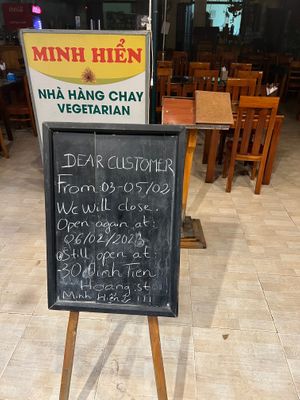 MINH HIỂN
NHÀ HÀNG CHAY
VEGETARIAN
DEAR CUSTOMER
From 03-05/02
We will close.
Open again at:
06/02/2023
Still open at:
30 Đinh Tiên
Hoang.st
Minh Hiển 2 !!!